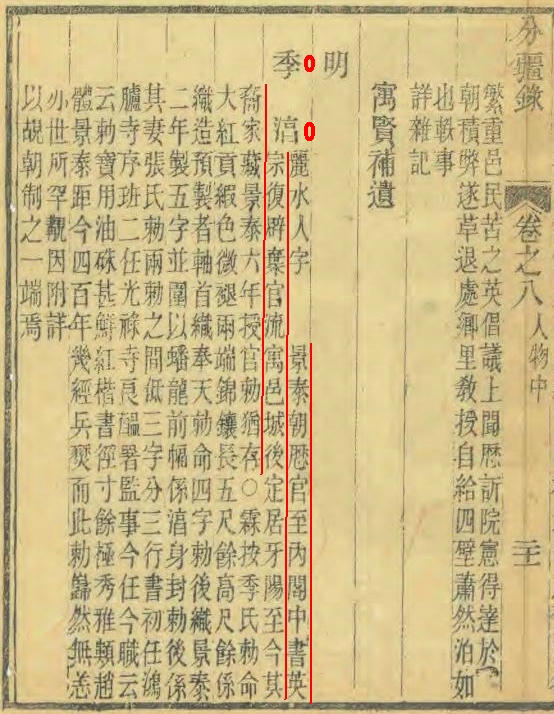 分疆錄 卷之八 人物中 二十
繁重邑民苦之英倡議上聞歷訴院憲得達於
朝積弊遂革退處鄉里教授自給四壁蕭然泊如
也軼事
詳雜記
寓賢補遺
明
季0湆0
麗水人字 景泰朝歷官至內閣中書英
宗復辟棄官流寓邑城後定居牙陽至今其
裔家藏景泰六年授官勅猶存○霖按季氏勅命
大紅貢緞色微褪兩端錦鑲長五尺餘高尺餘係
織造預製者軸首織奉天勅命四字勅後織景泰
二年製五字並圍以蟠龍前幅係湆身封勅後係
其妻張氏勅兩勅之間低三字分三行書初任鴻
臚寺序班二任光祿寺良醞署監事今任今職云
云勅寶用油硃甚鮮紅楷書徑寸餘極秀雅類趙
體景泰距今四百年幾經兵燹而此勅巋然無恙
亦世所罕覯因附詳
以覘朝制之一端焉